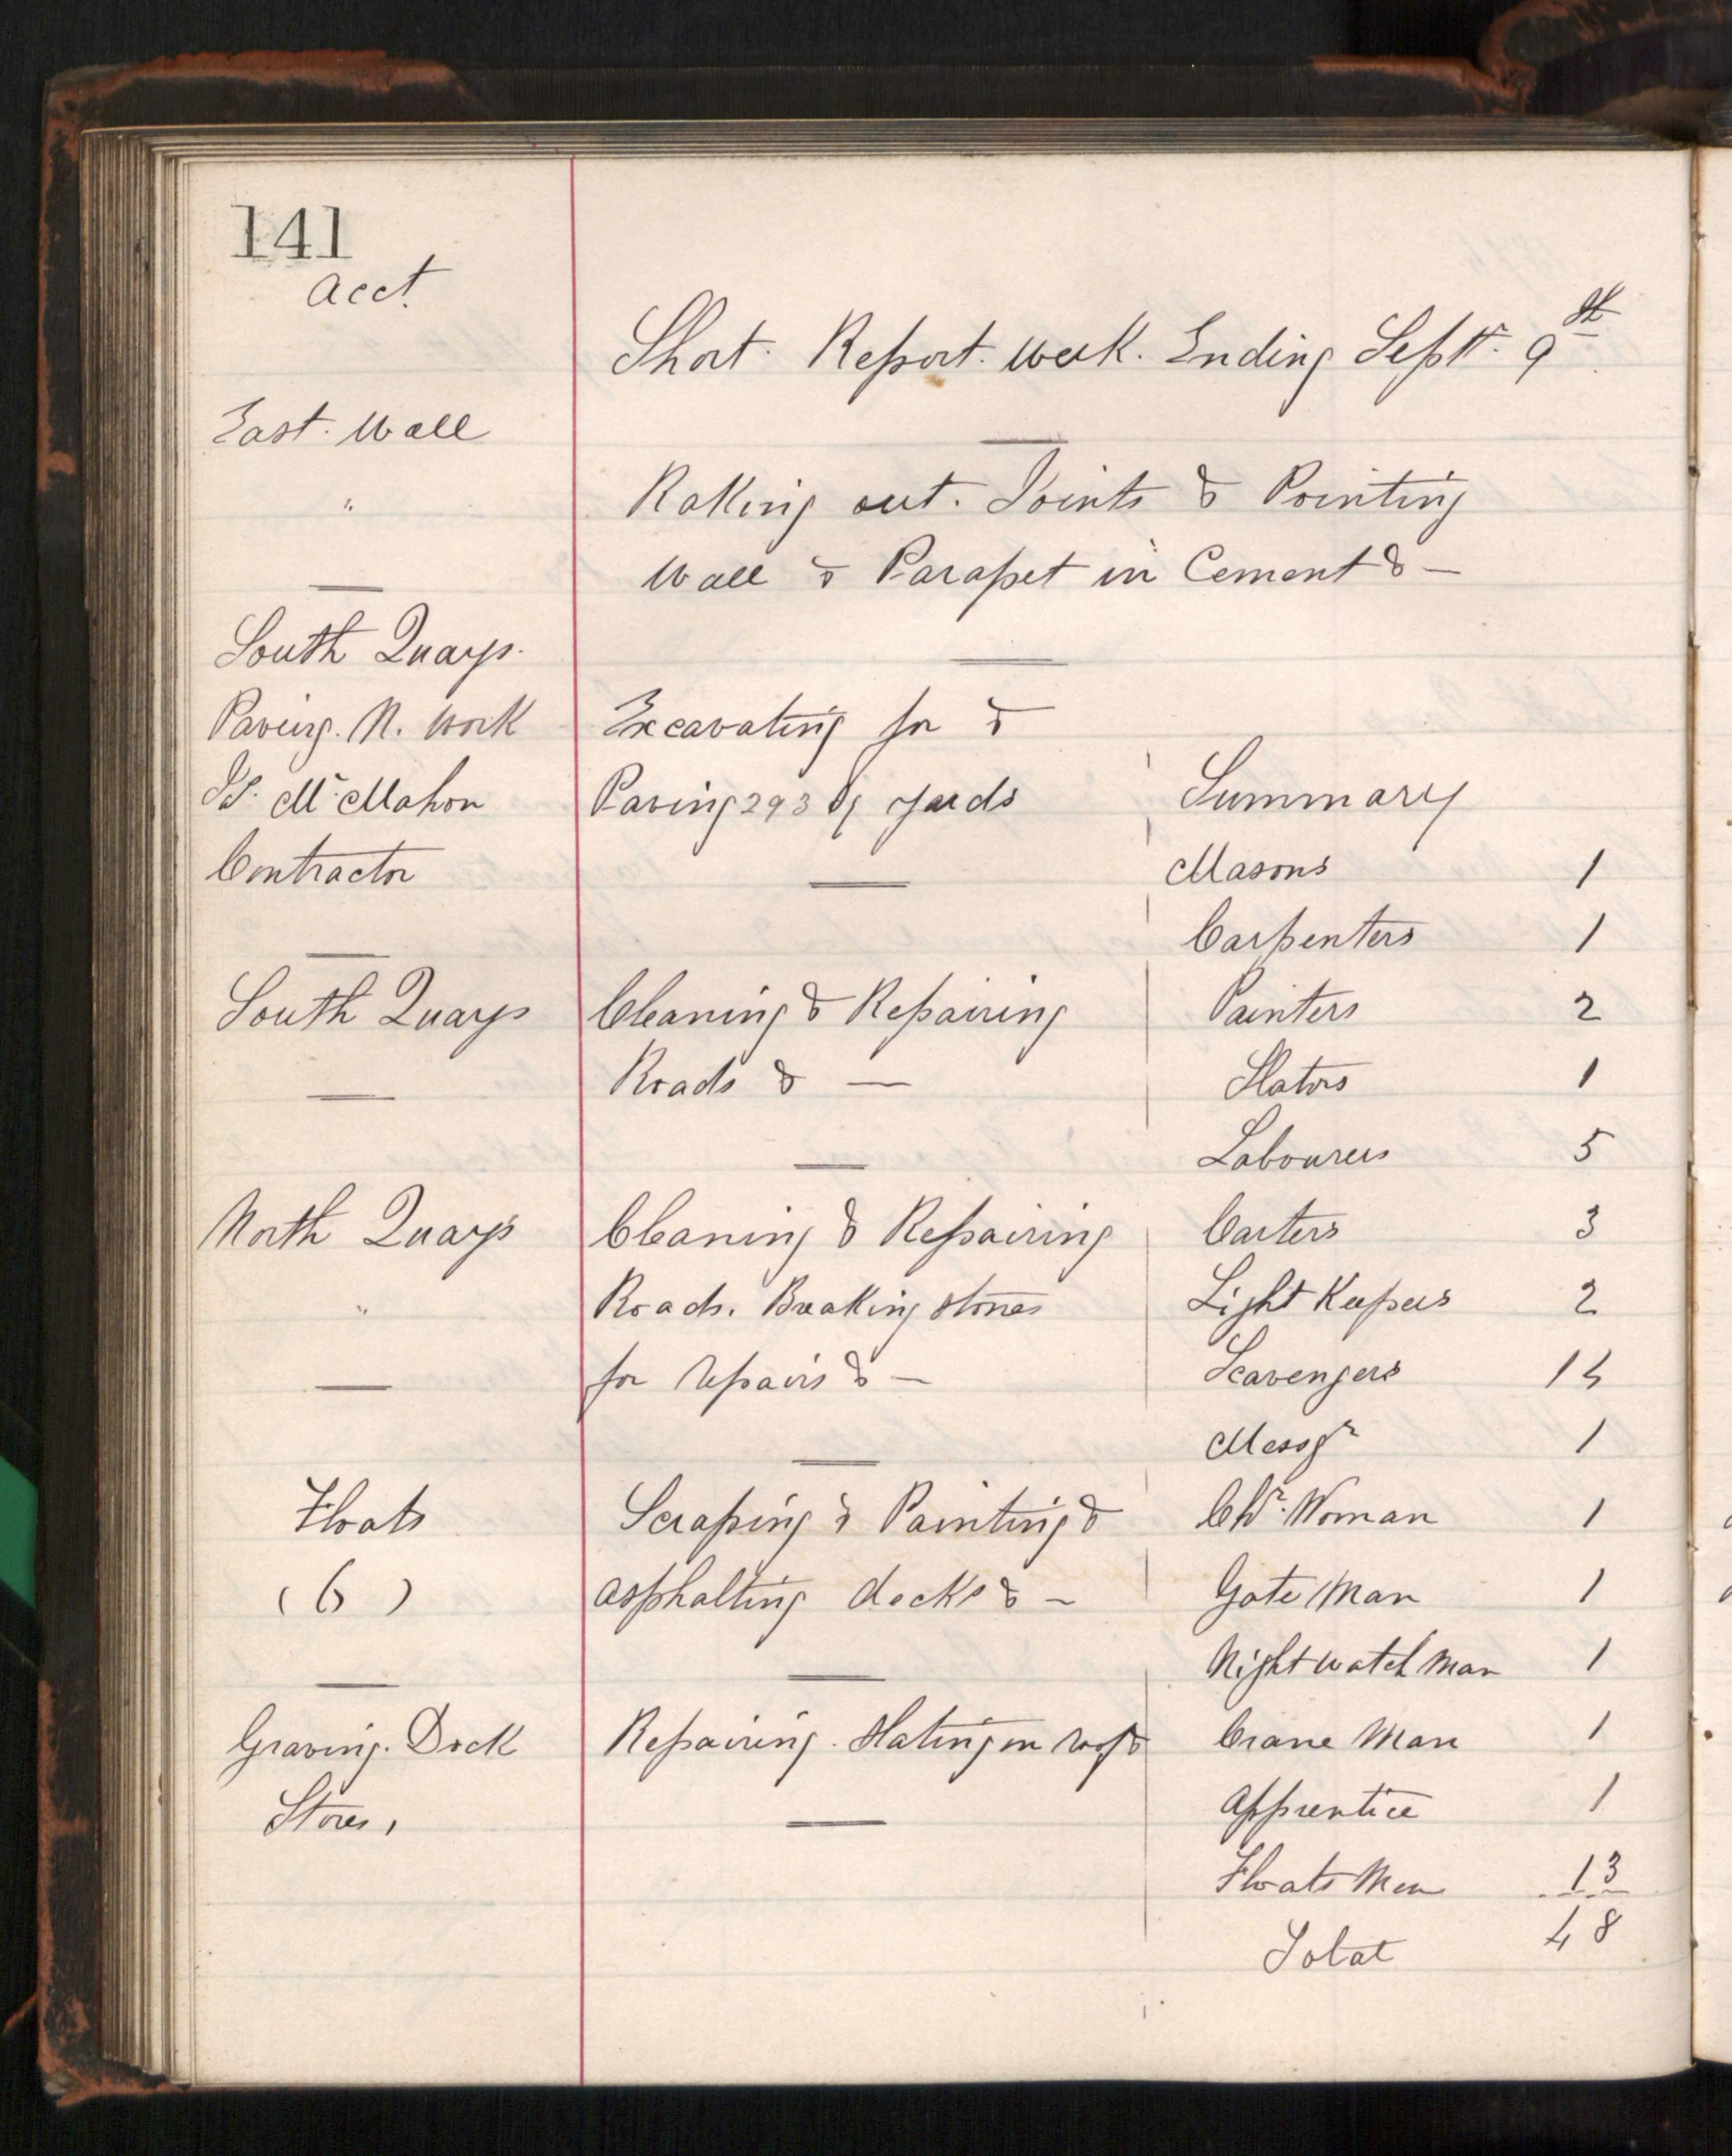 141
Acct.
Short. Report. week. Ending Sept. 9th
East. Wall
"
Raking out. Joints &
Pointing
Wall & Parapet in Cement & —
South Quays.
Paving. N. Work
Mc Mahon
Contractor
Excavating for &
Paving 293 Sq yards
South Quays
Cleaning & Repairing
Roads & —
North Quays
"
Cleaning & Repairing
Roads. Breaking stones
for repairs & —
Floats
(6)
Scraping & Painting &
asphalting decks & —
Graving. Dock
Stores,
Repairing. Slating on roof &
Summary
Masons 1
Carpenters 1
Painters 2
Slators 1
Labourers 5
Carters 3
Light Keepers 2
Scavengers 14
Messgr 1
Chr. Woman 1
Gate Man 1
Night watch Man 1
Crane Man 1
Apprentice 1
Floats Men 13
Total 48